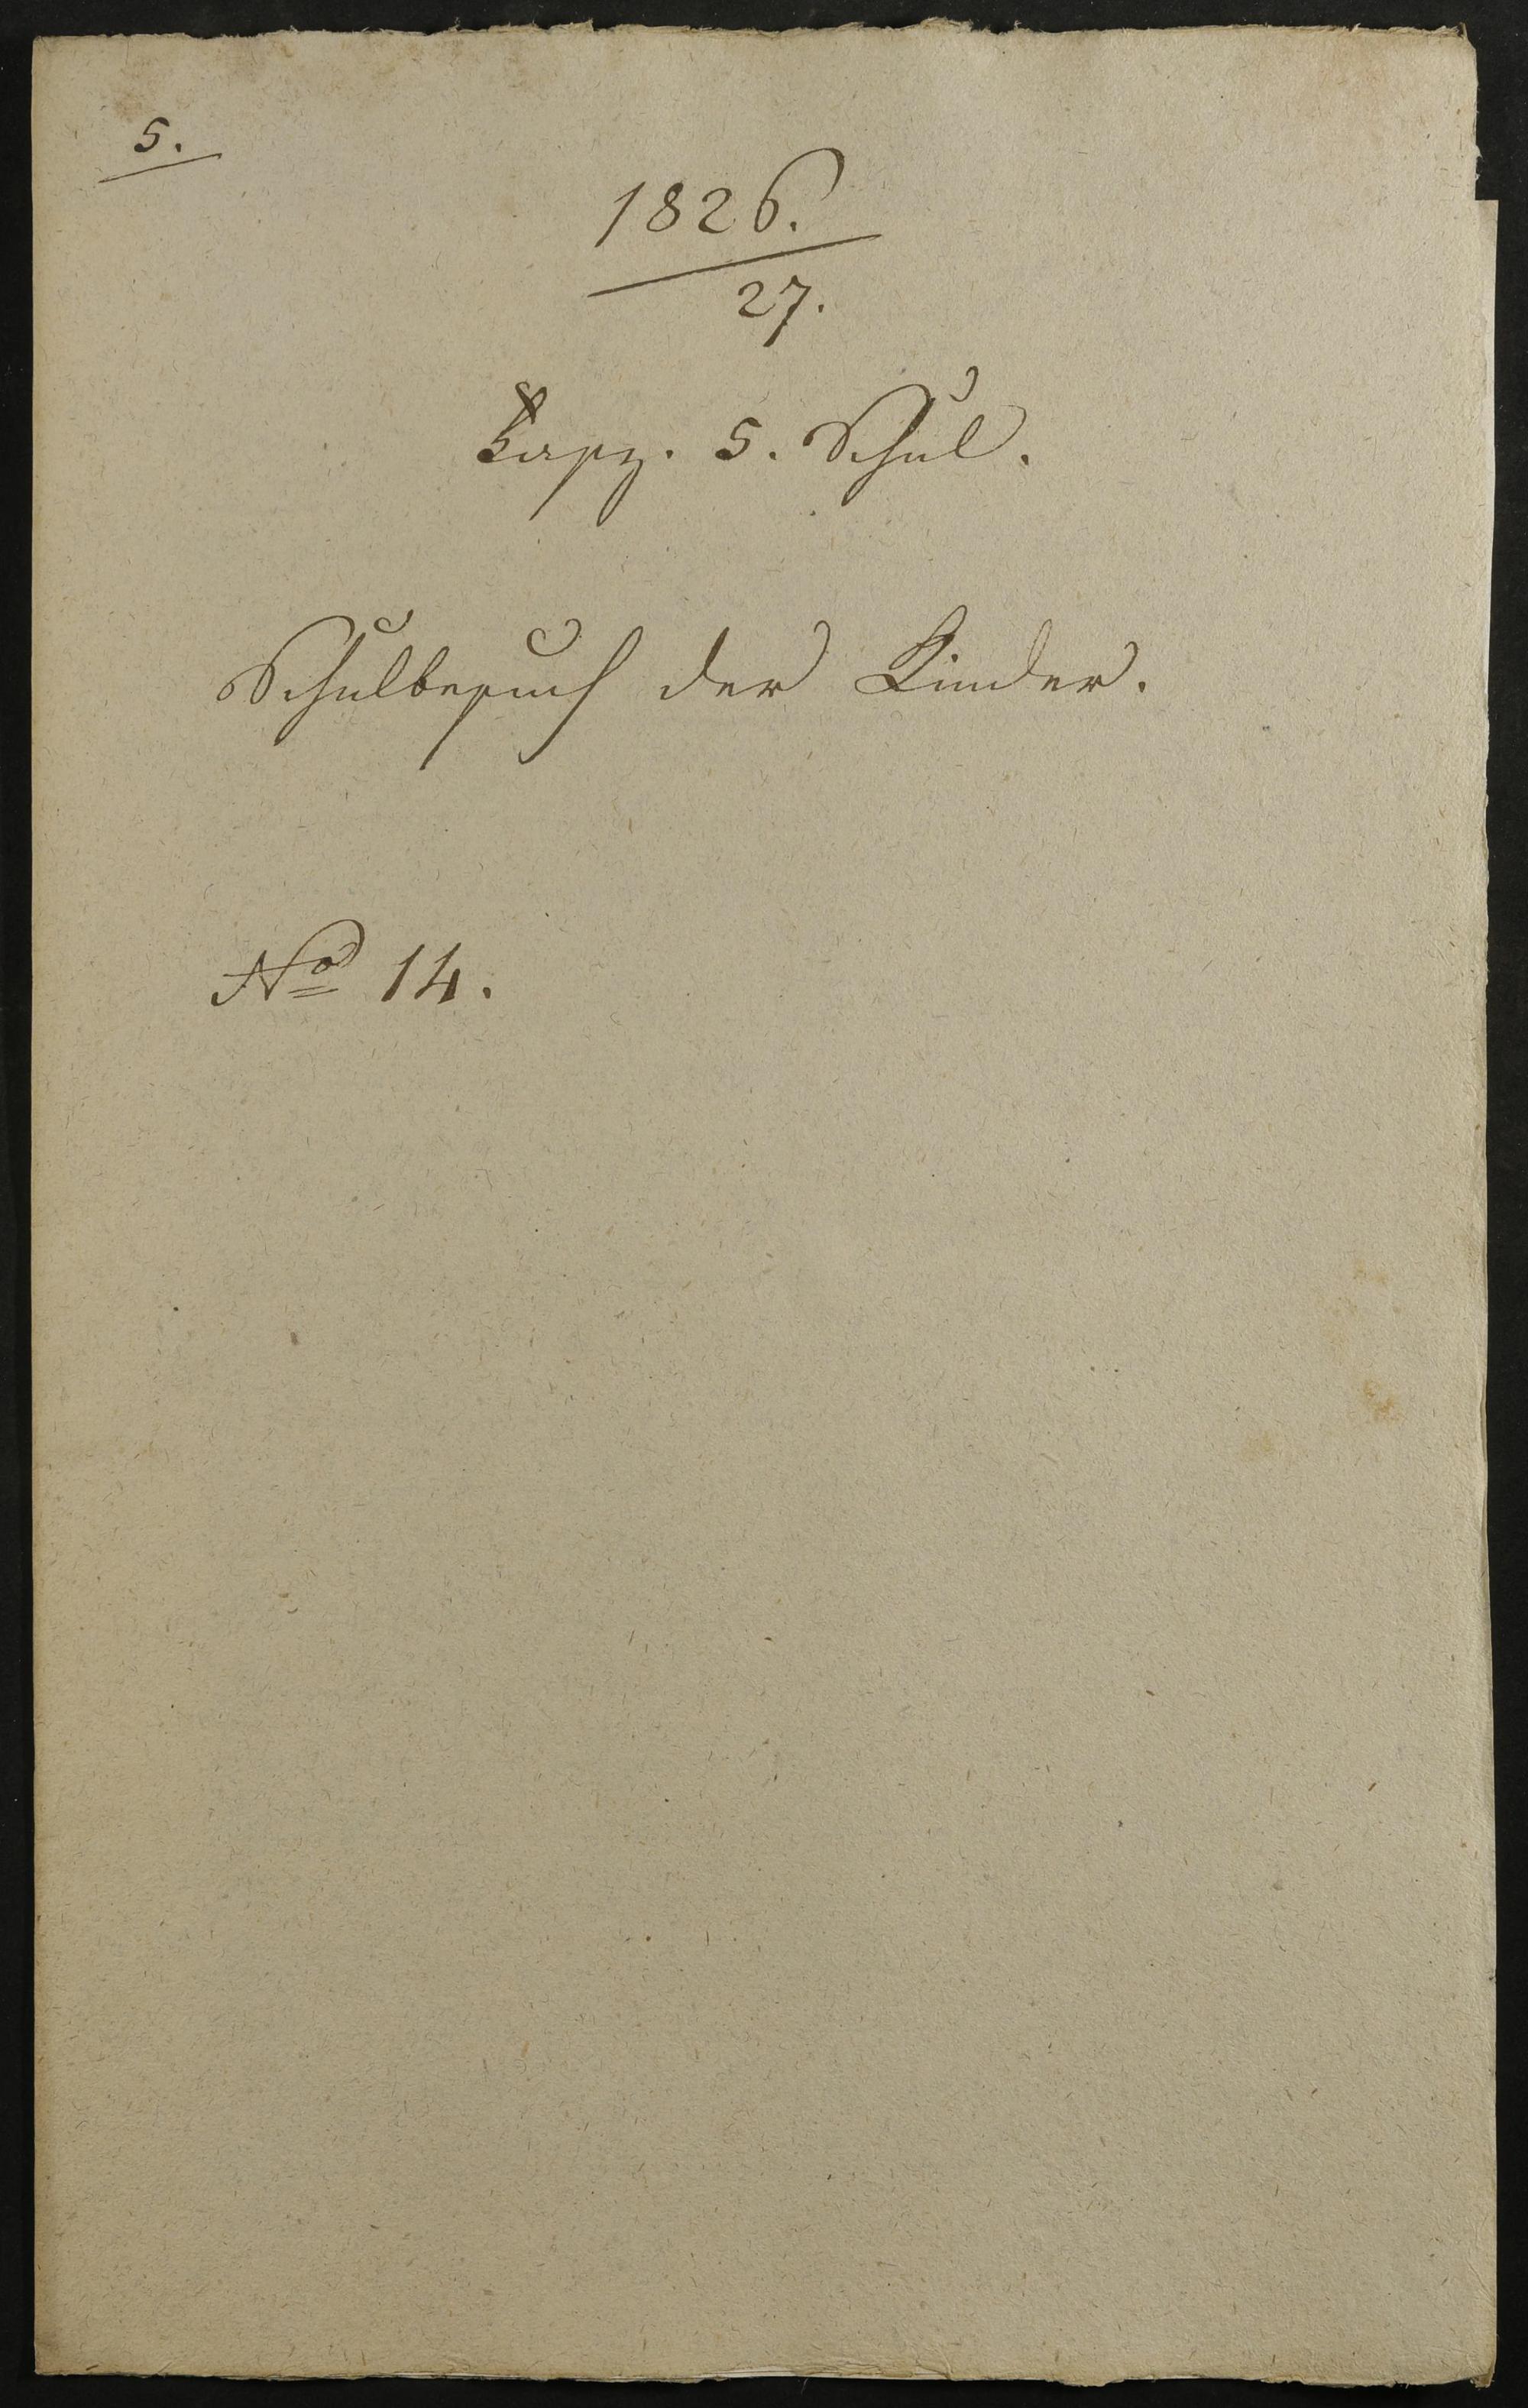 5.
1826.
27.
Fasz. 5. Schul.
Schulbesuch der Kinder.
No 14.